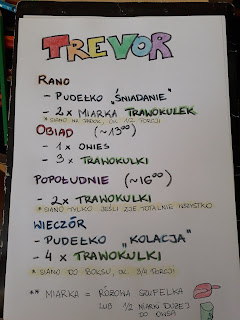 TREVOR
RANO
- PUDEŁKO "ŚNIADANIE"
- 2 x MIARKA TRAWOKULEK
* SIANO NA PADOK, OK. 1/2 PORCJI
OBIAD (~13⁰⁰)
- 1 x OWIES
- 3 x TRAWOKULKI
POPOŁUDNIE (~16⁰⁰)
- 2x TRAWOKULKI
* SIANO TYLKO JEŚLI ZJE TOTALNIE WSZYSTKO
WIECZÓR
- PUDEŁKO "KOLACJA"
- 4 x TRAWOKULKI
* SIANO DO BOKSU, OK. 3/4 PORCJI
** MIARKA = RÓŻOWA SZUFELKA
LUB 1/2 MIARKI DUŻEJ
DO OWSA